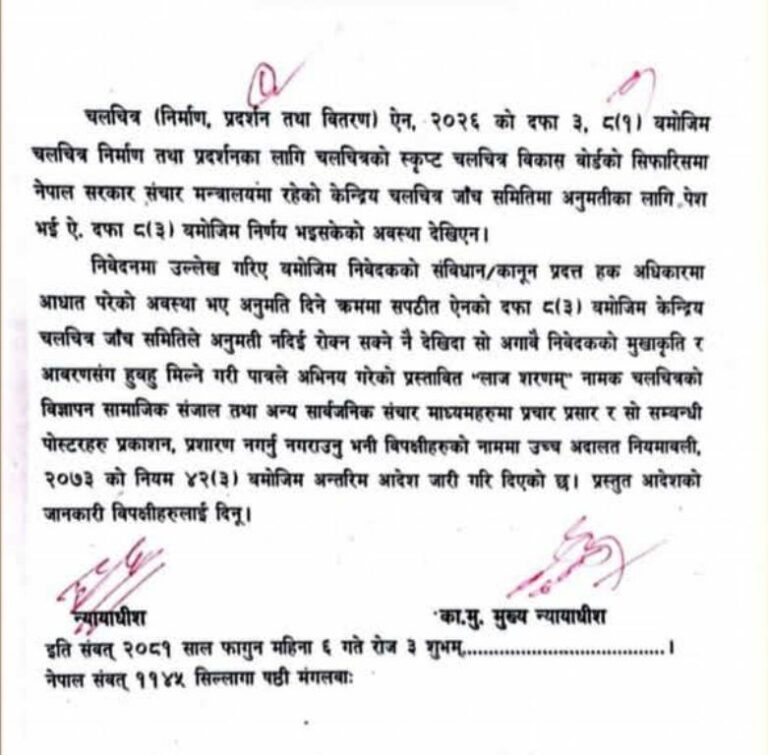 चलचित्र (निर्माण, प्रदर्शन तथा वितरण) ऐन, २०२६ को दफा ३, ८(१) बमोजिम
चलचित्र निर्माण तथा प्रदर्शनका लागि चलचित्रको स्कृप्ट चलचित्र विकास बोर्डको सिफारिसमा
नेपाल सरकार संचार मन्त्रालयमा रहेको केन्द्रिय चलचित्र जाँच समितिमा अनुमतीका लागि पेश
भई ऐ. दफा ८(३) बमोजिम निर्णय भइसकेको अवस्था देखिएन।
निवेदनमा उल्लेख गरिए बमोजिम निवेदकको संविधान/कानून प्रदत्त हक अधिकारमा
आधात परेको अवस्था भए अनुमति दिने क्रममा सपठीत ऐनको दफा ८(३) बमोजिम केन्द्रिय
चलचित्र जाँच समितिले अनुमती नदिई रोक्न सक्ने नै देखिदा सो अगाबै निवेदकको मुखाकृति र
आवरणसंग हुबहु मिल्ने गरी पात्रले अभिनय गरेको प्रस्तावित "लाज शरणम्" नामक चलचित्रको
विज्ञापन सामाजिक संजाल तथा अन्य सार्वजनिक संचार माध्यमहरुमा प्रचार प्रसार र सो सम्बन्धी
पोस्टरहरु प्रकाशन, प्रशारण नगर्नु नगराउनु भनी बिपक्षीहरुको नाममा उच्च अदालत नियमावली,
२०७३ को नियम ४२(३) बमोजिम अन्तरिम आदेश जारी गरि दिएको छ। प्रस्तुत आदेशको
जानकारी बिपक्षीहरुलाई दिनू।
न्यायाधीश का.मु. मुख्य न्यायाधीश
इति संबत् २०८१ साल फागुन महिना ६ गते रोज ३ शुभम्.......................................।
नेपाल संबत् ११४५ सिल्लागा षष्ठी मंगलबाः